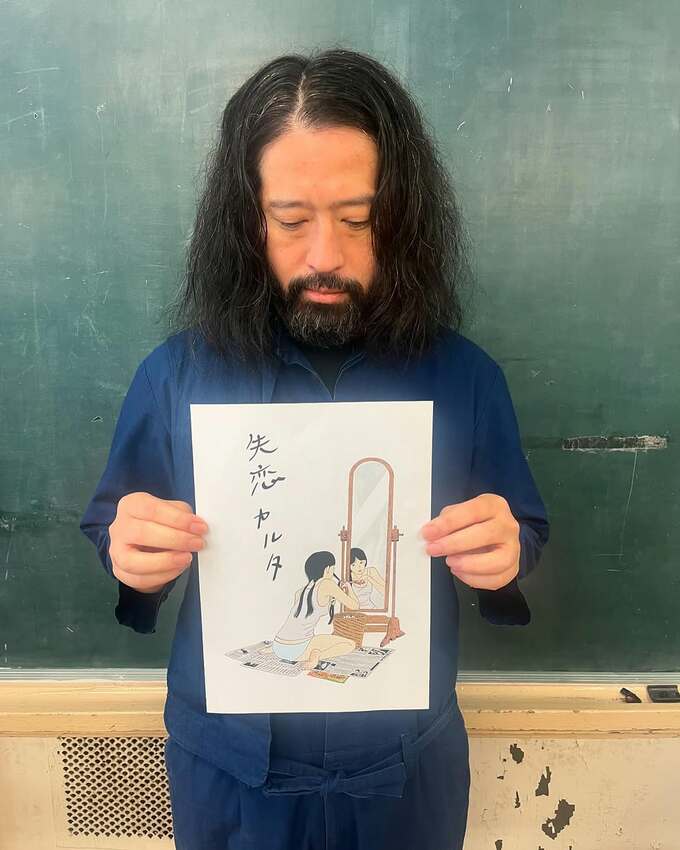 失恋カルタ